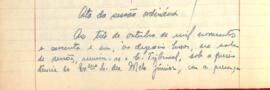 Ata da sessão ordinária
Aos três de outubro de mil novecentos
e sessenta e um, às dezesseis horas, na sala
de sessões, reuniu-se o E. Tribunal, sob a presi-
dência do Exmo. Sr. Des. Melo Júnior, com a presença